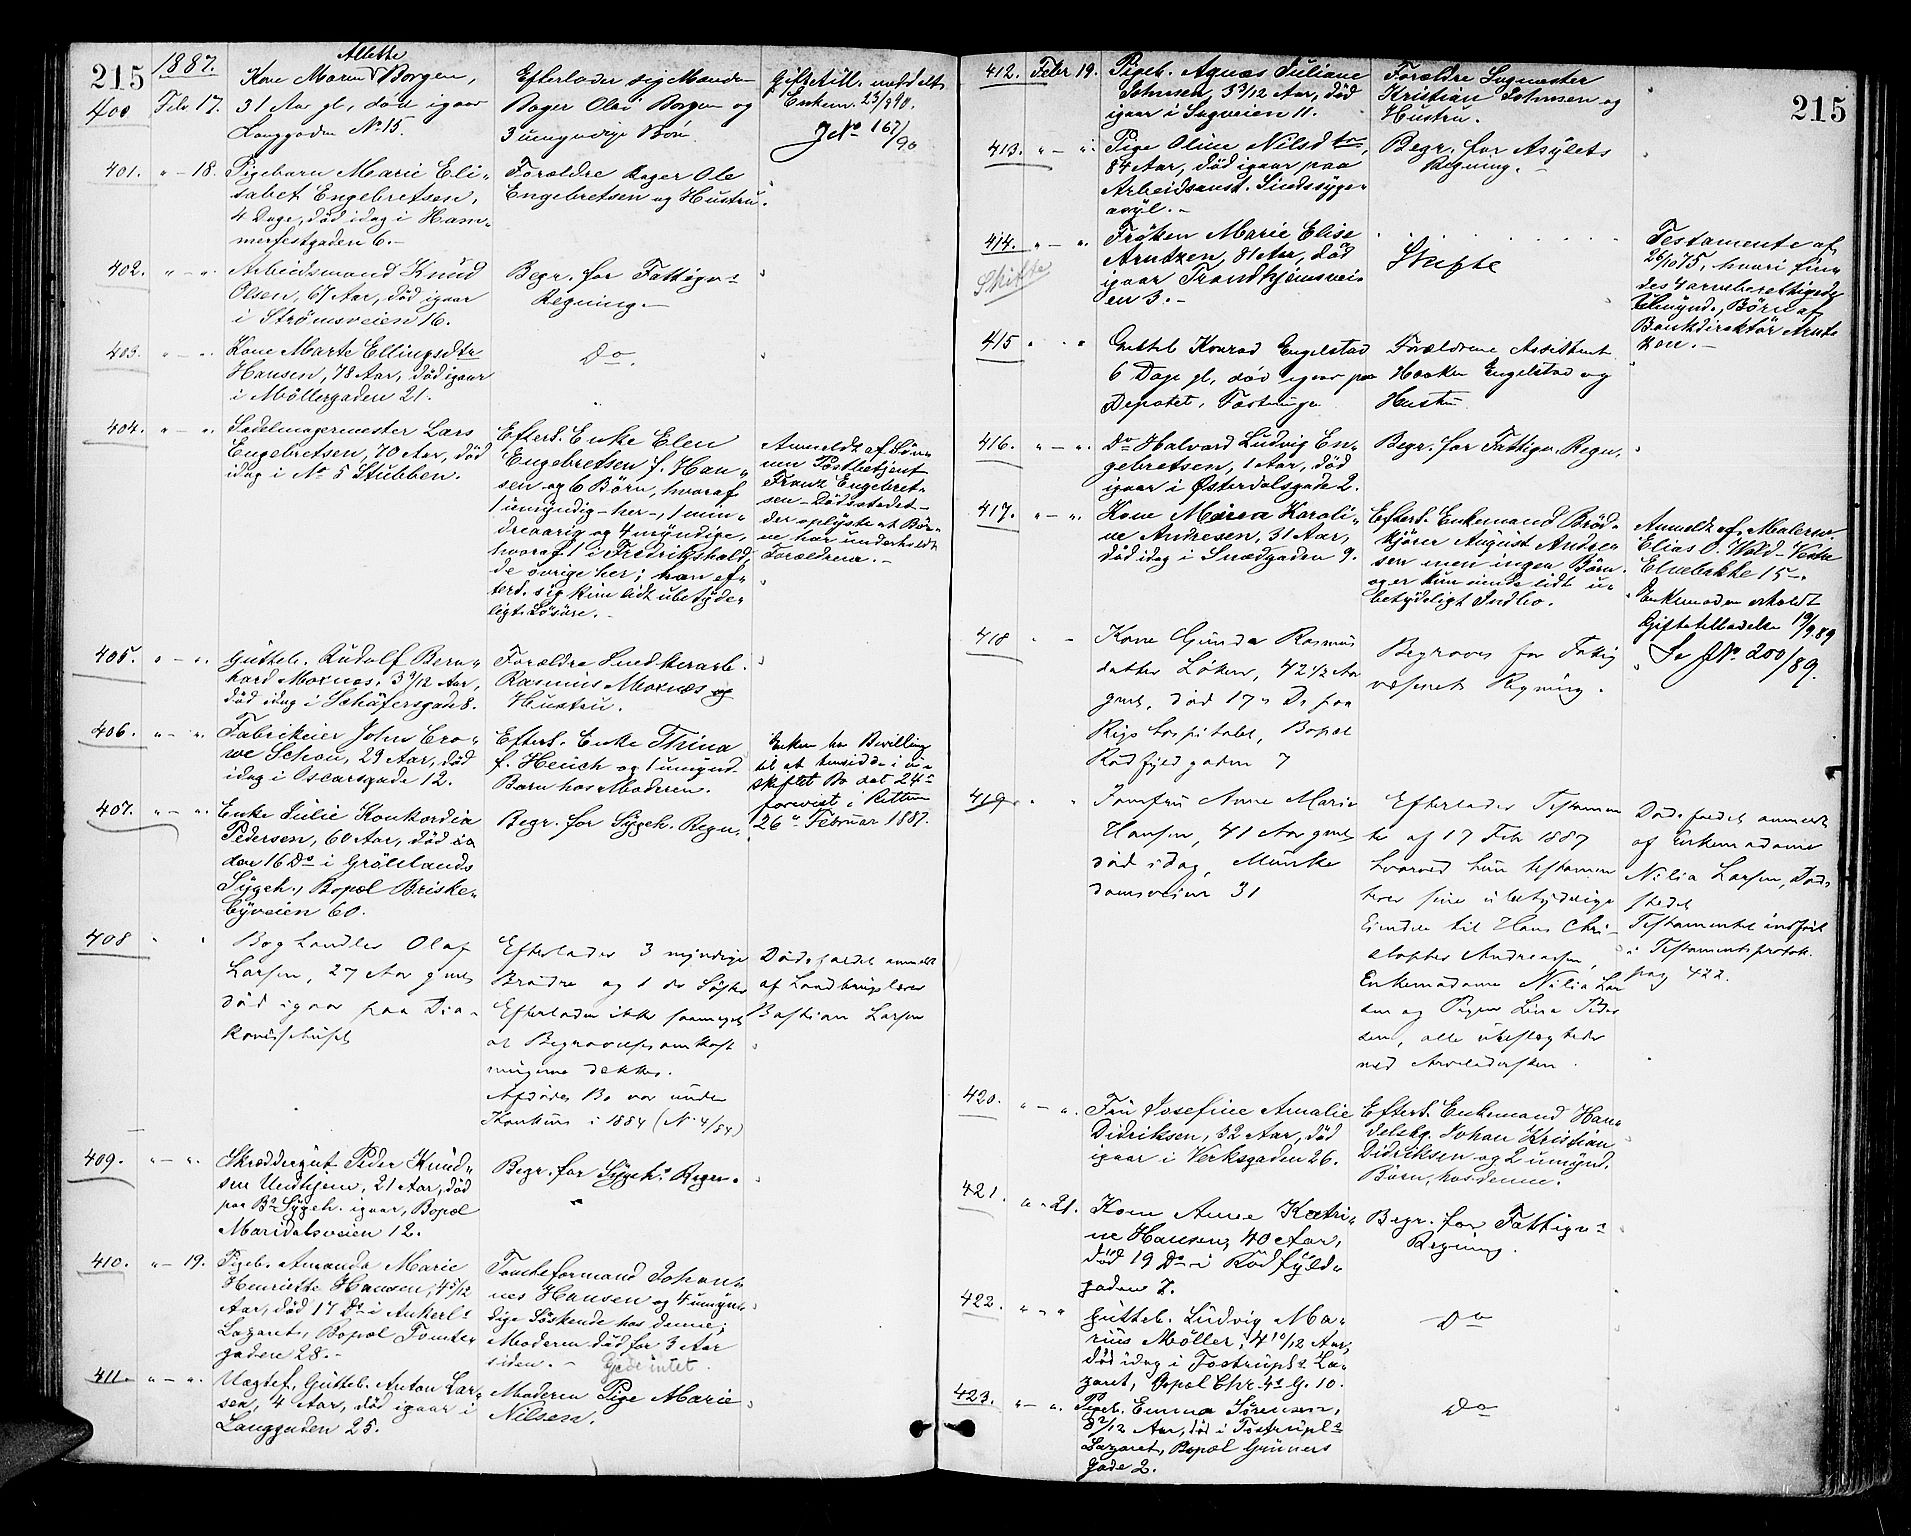 215
1887.
400
Feb 17.
Kone Maren Alette Borgen,
31 Aar gl., død igaar
Langgaden No 15.
Efterlader sig Mand
Bager Olai Borgen og
3 umyndige Børn
Giftetill. meddelt
Enkem. 23/8 90.
J No 167/90
401. " - 18.
Pigebarn Marie Eli-
sabet Engebretsen,
4 Dage, død idag i Ham-
merfestgaden 6.-
Forældre Bager Ole
Engebretsen og Hustru.
402. " - ".
Arbeidsmand Knud
Olsen, 67 Aar, død igaar
i Strømsveien 16.
Begr. for Fattigv.s
Regning.-
403. " - ".
Kone Marte Ellingsdtr
Hansen, 78 Aar, død igaar
i Möllergaden 21.
Do.
404. " - ".
Sadelmagermester Lars
Engebretsen, 70 Aar, død
idag i No 5 Stubben.
Efterl. Enke Elen
Engebretsen f. Han-
sen og 6 Børn, hvoraf
1 umyndig - her -, 1 min-
dreaarig og 4 myndige,
hvoraf 1 i Fredrikshald,
de øvrige her; han ef-
terl. sig kun lidt ubetyde-
ligt Løsøre.-
Anmeldt af Søn-
nen Postbetjent
Franz Engebret-
sen - Dødsstedet -
der oplyste at Bør-
ne har underholdt
Forældrene.-
405. " - ".
Gutteb. Rudolf Bern-
hard Moxnes, 3 3/12 Aar,
død idag i Schäfersgade 8.
Forældre Snedkerarb.
Rasmus Moxnes og
Hustru.
406. " - ".
Fabrikeier John Cro-
we Schou, 29 Aar, død
idag i Oscarsgade 12.
Efterl. Enke Thina
f. Heuch og 1 umynd.
Barn hos Moderen.
Enken har Bevilling
til at hensidde i u-
skiftet Bo dat 24de
forevist i Retten
26de Februar 1887.
407. " - ".
Enke Julie Konkordia
Pedersen, 60 Aar, død
den 16 Ds i Grönlands
Sygeh., Bopæl Briske-
byveien 60.
Begr. for Sygeh. Regn.
408 " "
Boghandler Olaf
Larsen, 27 Aar gml
død igaar paa Dia-
konissehuset
Efterlader 3 myndige
Brødre og 1 do Søster
Efterlader ikke saameget
at Begravelsesomkost
ningerne dekkes.
Afdødes Bo var under
Konkurs i 1884 (No 4/84)
Dødsfaldet anmeldt
af Landbrugslærer
Bastian Larsen
409. " - ".
Skræddergut Peder Knud-
sen Undhjem, 21 Aar, død
paa Bs Sygeh. igaar, Bopæl
Maridalsveien 12.
Begr. for Sygeh.s Regn.
410. " - 19.
Pigeb. Amanda Marie
Henriette Hansen, 4 5/12
Aar, død 17 Ds i Ankerl.s
Lazaret, Bopæl Tomte-
gadene 28.-
Tomteformand Johan-
nes Hansen og 4 umyn-
dige Söskende hos denne;
Moderen død for 3 Aar
siden.- Eyede intet.
411. " - ".
Uægtef. Gutteb. Anton Lar-
sen, 4 Aar, død igaar i
Langgaden 25.
Moderen Pige Marie
Nilsen.
215
412. Febr 19.
Pigeb. Agnes Juliane
Johnsen, 3 3/12 Aar, død
igaar i Sagveien 11.
Forældre Sagmester
Kristian Johnsen og
Hustru.
413. " - ".
Pige Oline Nilsdtr,
84 Aar, død igaar paa
Arbeidsanst. Sindssyge-
asyl.-
Begr. for Asylets
Regning.-
414. " - ".
Skifte
Frøken Marie Elise
Arntzen, 81 Aar, død
igaar Trondhjemsvei-
en 3.-
Skifte
Testamente af
26/10 75, hvori fin-
des 4 arveberettigede
umynd., Børn af
Bankdirektør Arnt-
zen.-
415 " "
Gutteb Konrad Engelstad
6 Dage gl, død igaar paa
Depotet, Fæstninge
Forældrene Assistent
Haaken Engelstad og
Hustru
416. " - ".
Do Halvard Ludvig En-
gebretsen, 1 Aar, død
igaar i Østerdalsgade 2.
Begr. for Fattigv. Regn.
417. " - ".
Kone Maren Karoli-
ne Andresen, 31 Aar,
død idag i Smedgaden 9.
Efterl. Enkemand Brød-
kjører August Andre-
sen men ingen Børn
og er kun eiende lidt u-
betydeligt Indbo.
Anmeldt af Malersv.
Elias O. Wold - Vestre
Elvebakke 15 -
Enkemanden erholdt
Giftetilladelse 19/9 89
Se J No. 200/89.
418 " -
Kone Gunda Rasmus
datter Løken, 42 1/2 Aar
gml, død 17de Ds paa
Rigshospitalet, Bopæl
Rødfyldgaden 7
Begraves for Fattig
væsenets Regning.
419 " "
Jomfru Anne Marie
Hansen, 41 Aar gml
død idag, Munke
damsveien 31
Efterlader Testamen
te af 17 Feb 1887
hvorved hun testamen
terer sine ubetydelige
Eiendele til Hans Chri-
stopher Andreassen,
Enkemadame Nilia Lar
sen og Pigen Lina Peder
sen, alle ubeslægtede
med Arveladersken.
Dødsfaldet anmeldt
af Enkemadame
Nilia Larsen, Døds-
stedet
Testamentet indført
i Testamentsprotok.
pag 422.
420. " - ".
Fru Josefine Amalie
Didriksen, 32 Aar, død
igaar i Verksgaden 26.
Efterl. Enkemand Han-
delsbg. Johan Kristian
Didriksen og 2 umynd.
Børn, hos denne.
421. " - 21.
Kone Anne Katri-
ne Hansen, 40 Aar,
død 19 Ds i Rødfyld-
gaden 7.
Begr. for Fattigv.s
Regning.
422. " - "
Gutteb. Ludvig Ma-
rius Möller, 4 10/12 Aar,
død idag i Tostrupl.s La-
zaret, Bopæl Chr. 4s G. 10.
Do
423. " - ".
Pigeb. Emma Sørensen,
8 2/12 Aar, død i Tostrupl.s
Lazaret, Bopæl Grüners
gade 2.
Do